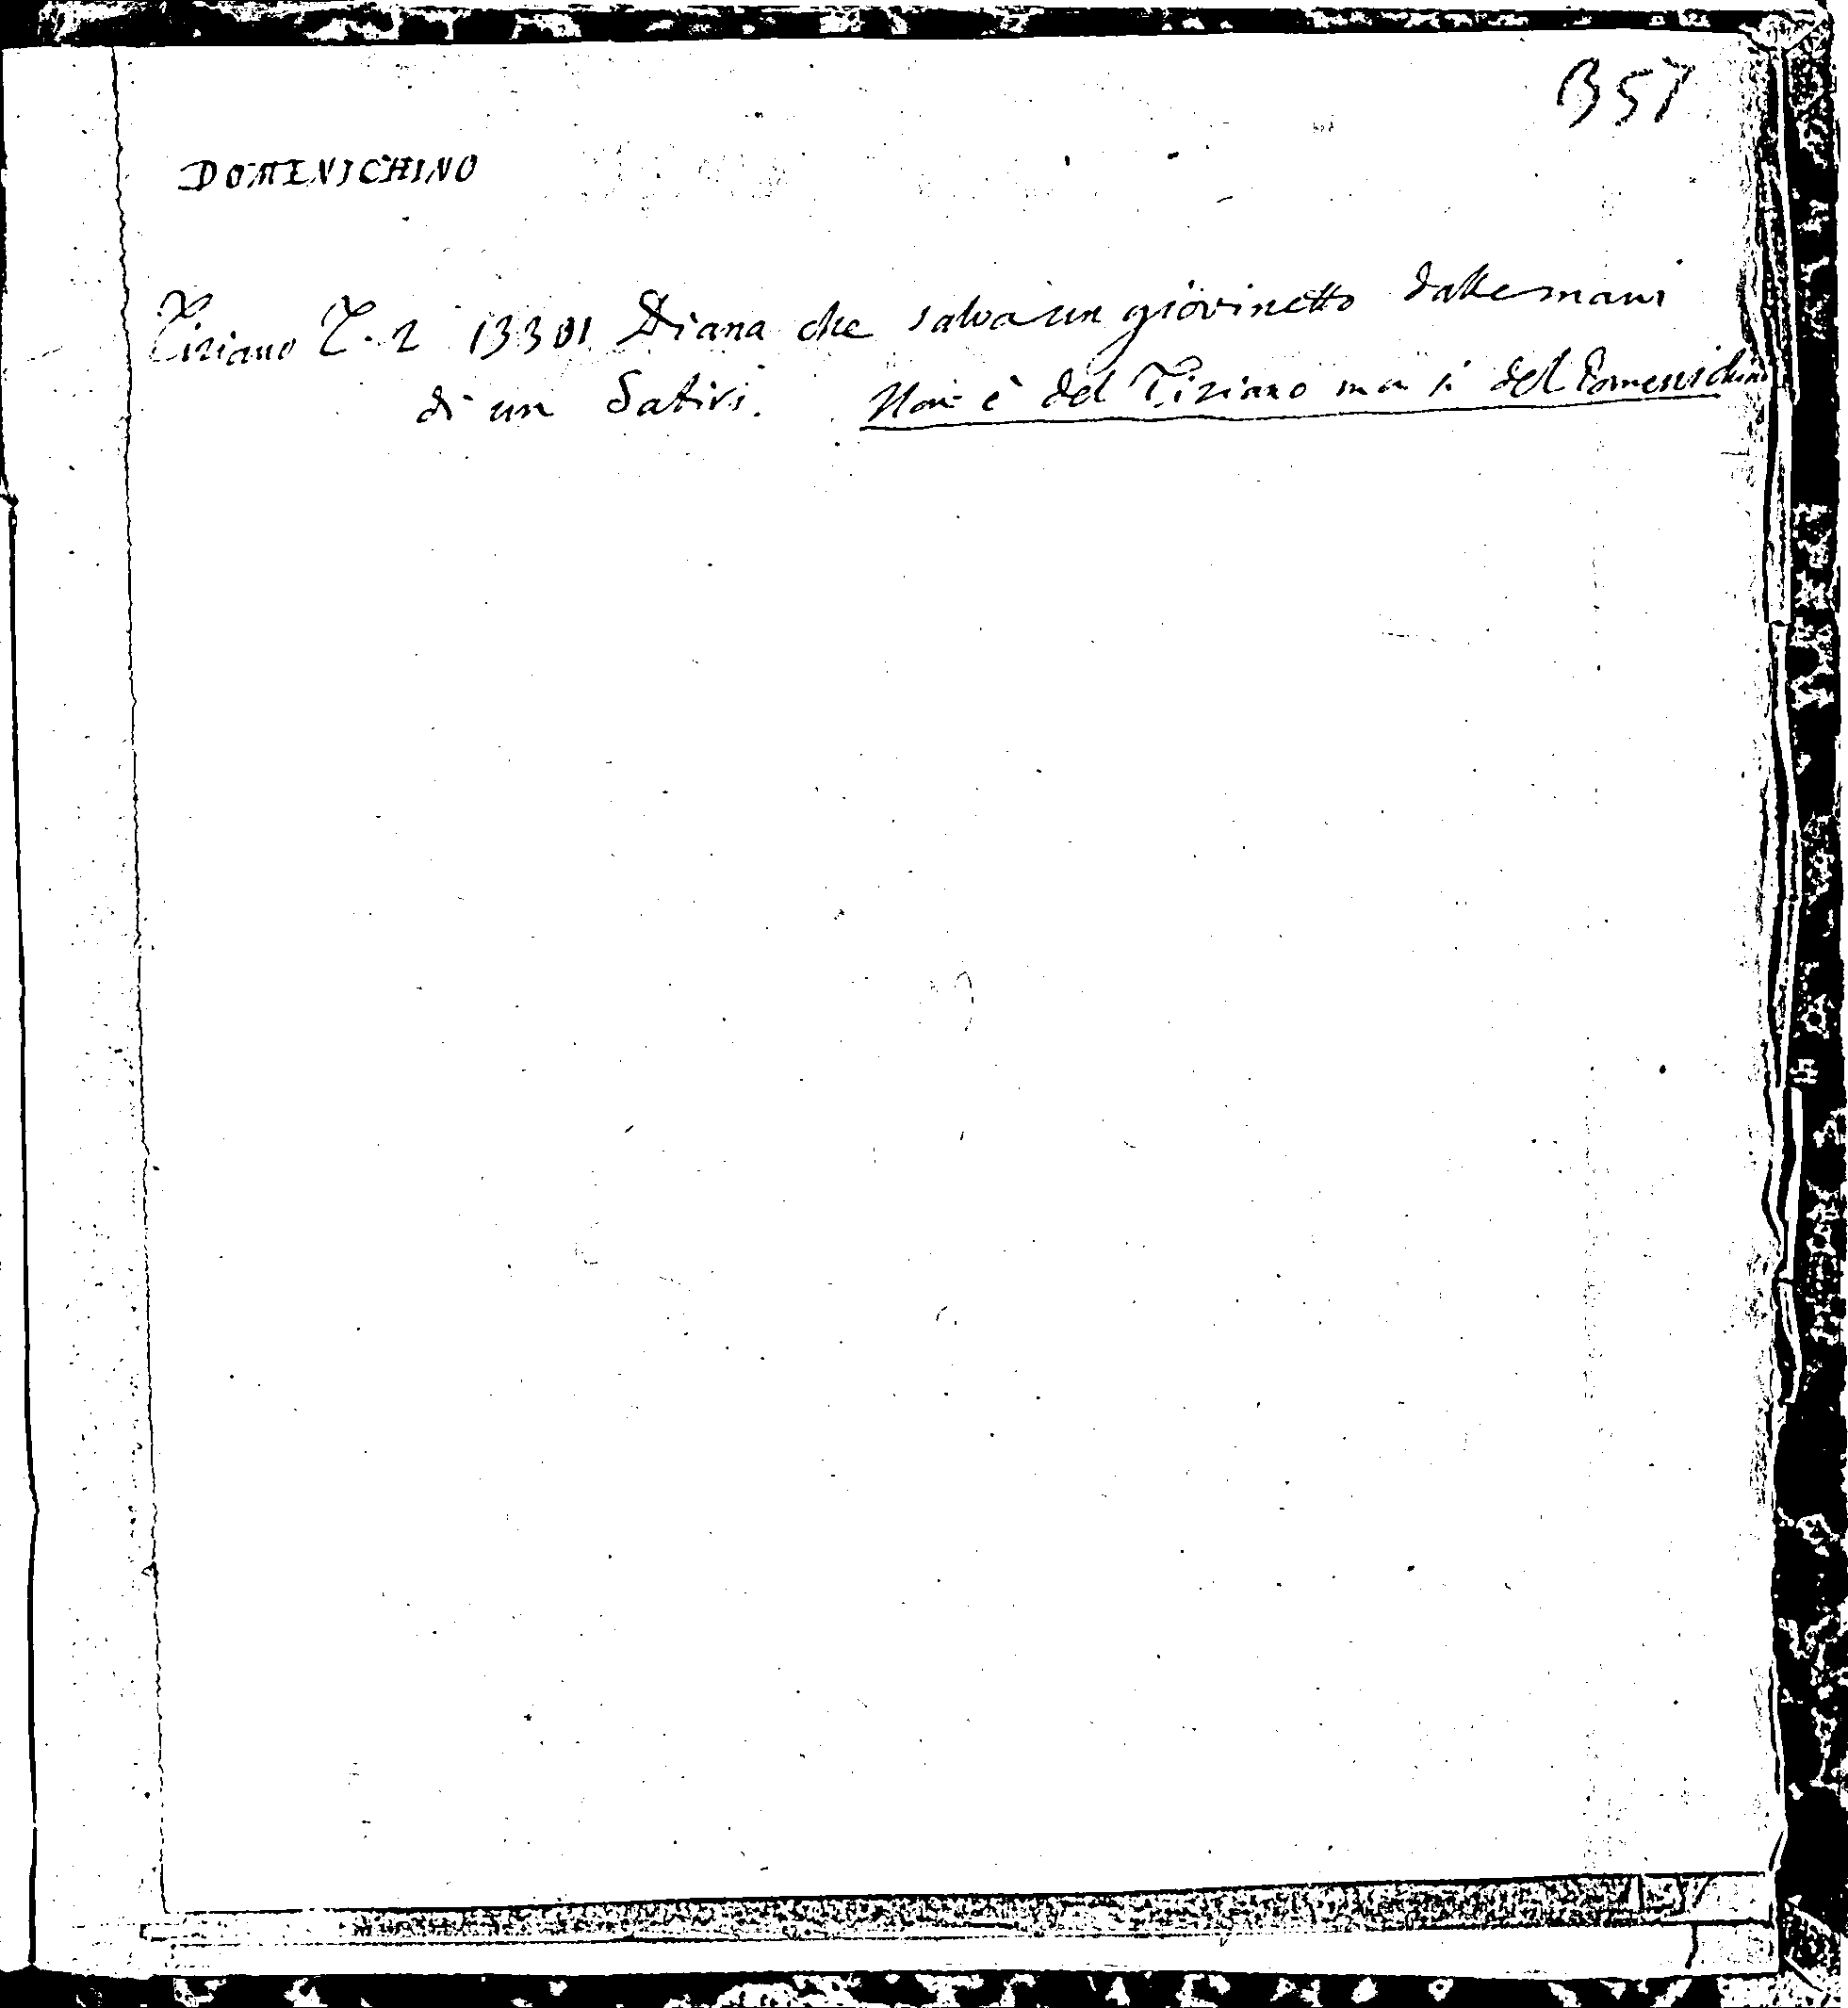 B57
DOMENICHINO
Tiziano T. 2 13301 Diana che salva un giovinetto dalle mani
di un Satiri. Non è del Tiziano ma si del Domenichino